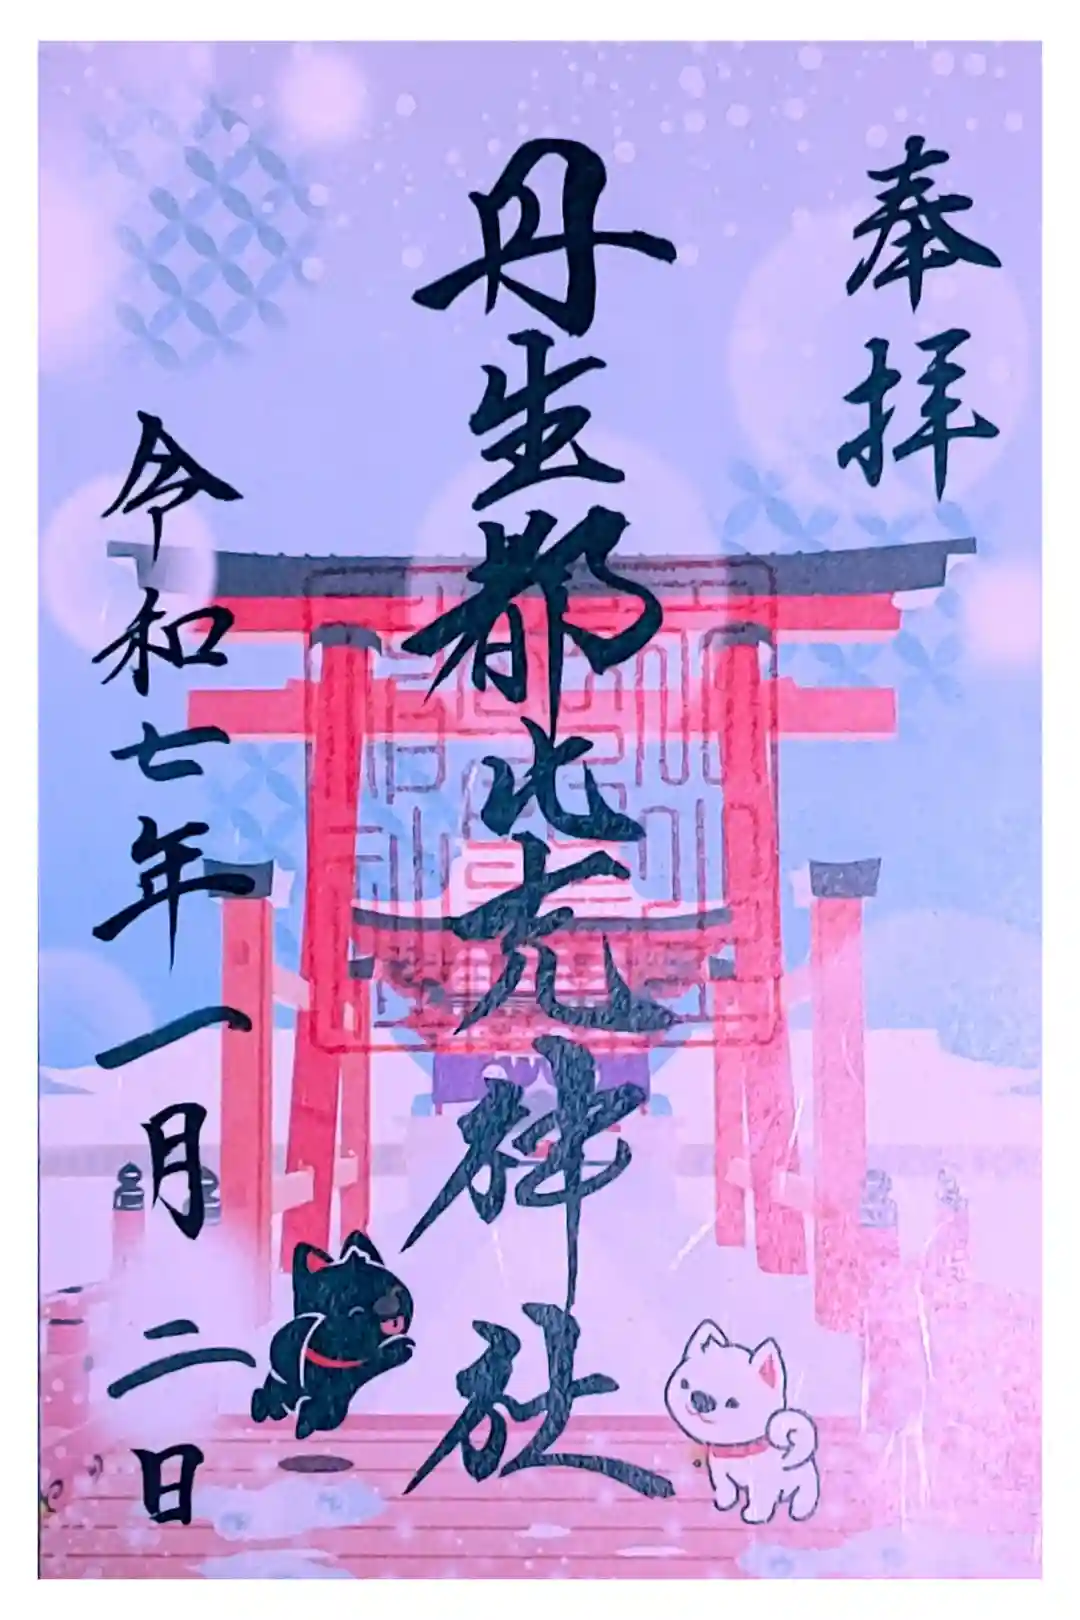 奉拝
丹生都比売神社
令和七年一月二日